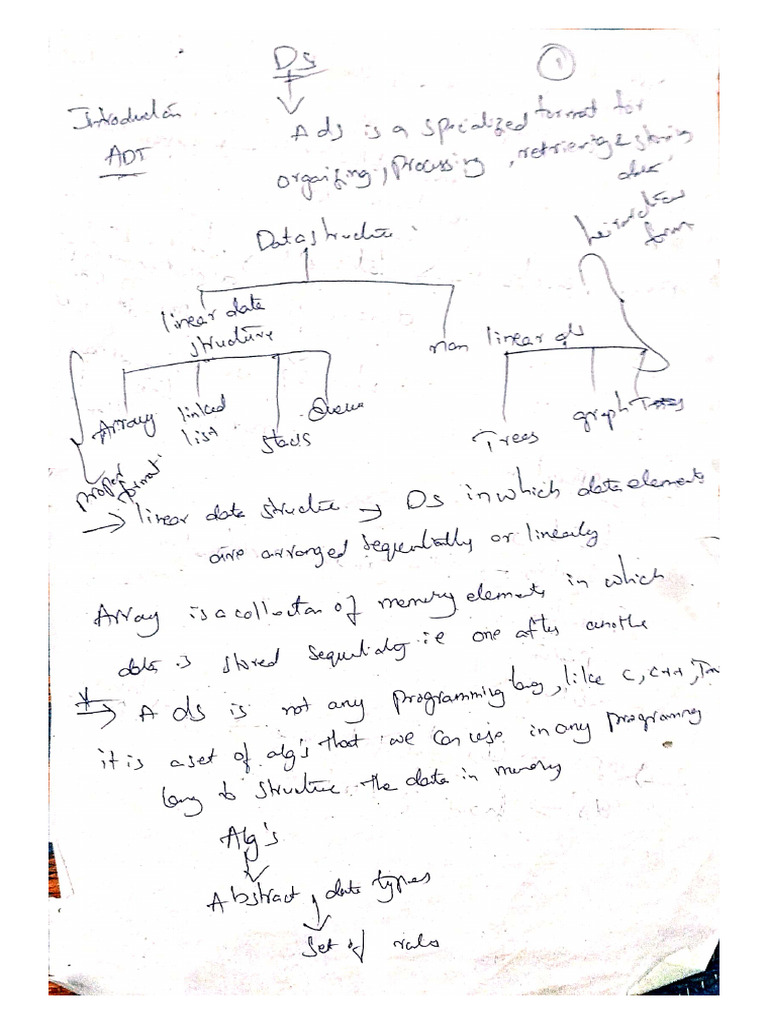 DS
1
Introduction
ADT
A ds is a specialized format for
organizing, processing, retrieving & storing
data
Data structure
heirarchical
form
linear data
structure
non linear ds
Array
linked
list
Stacks
Queue
Trees
graph
Proper
format
→ linear data structure → DS in which data elements
are arranged sequentially or linearly
Array is a collection of memory elements in which
data is stored sequentially ie one after another
* → A ds is not any programming lang, like C, C++,
it is a set of alg's that we can use in any programming
lang to structure the data in memory
Alg's
Abstract data types
set of rules